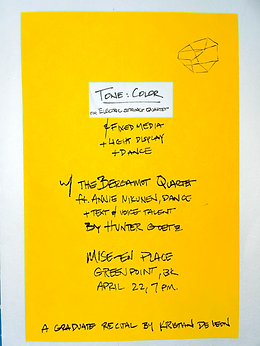 TONE: COLOR
FOR ELECTRIC STRING QUARTET
& FIXED MEDIA
+ LIGHT DISPLAY
+ DANCE
W/ THE BERGAMOT QUARTET
ft. ANNIE NIKUNEN, DANCE
+ TEXT & VOICE TALENT
BY HUNTER GOETZ
MISE EN PLACE
GREENPOINT, BK
APRIL 22, 7 PM.
A GRADUATE RECITAL BY KRISTIAN DE LEON